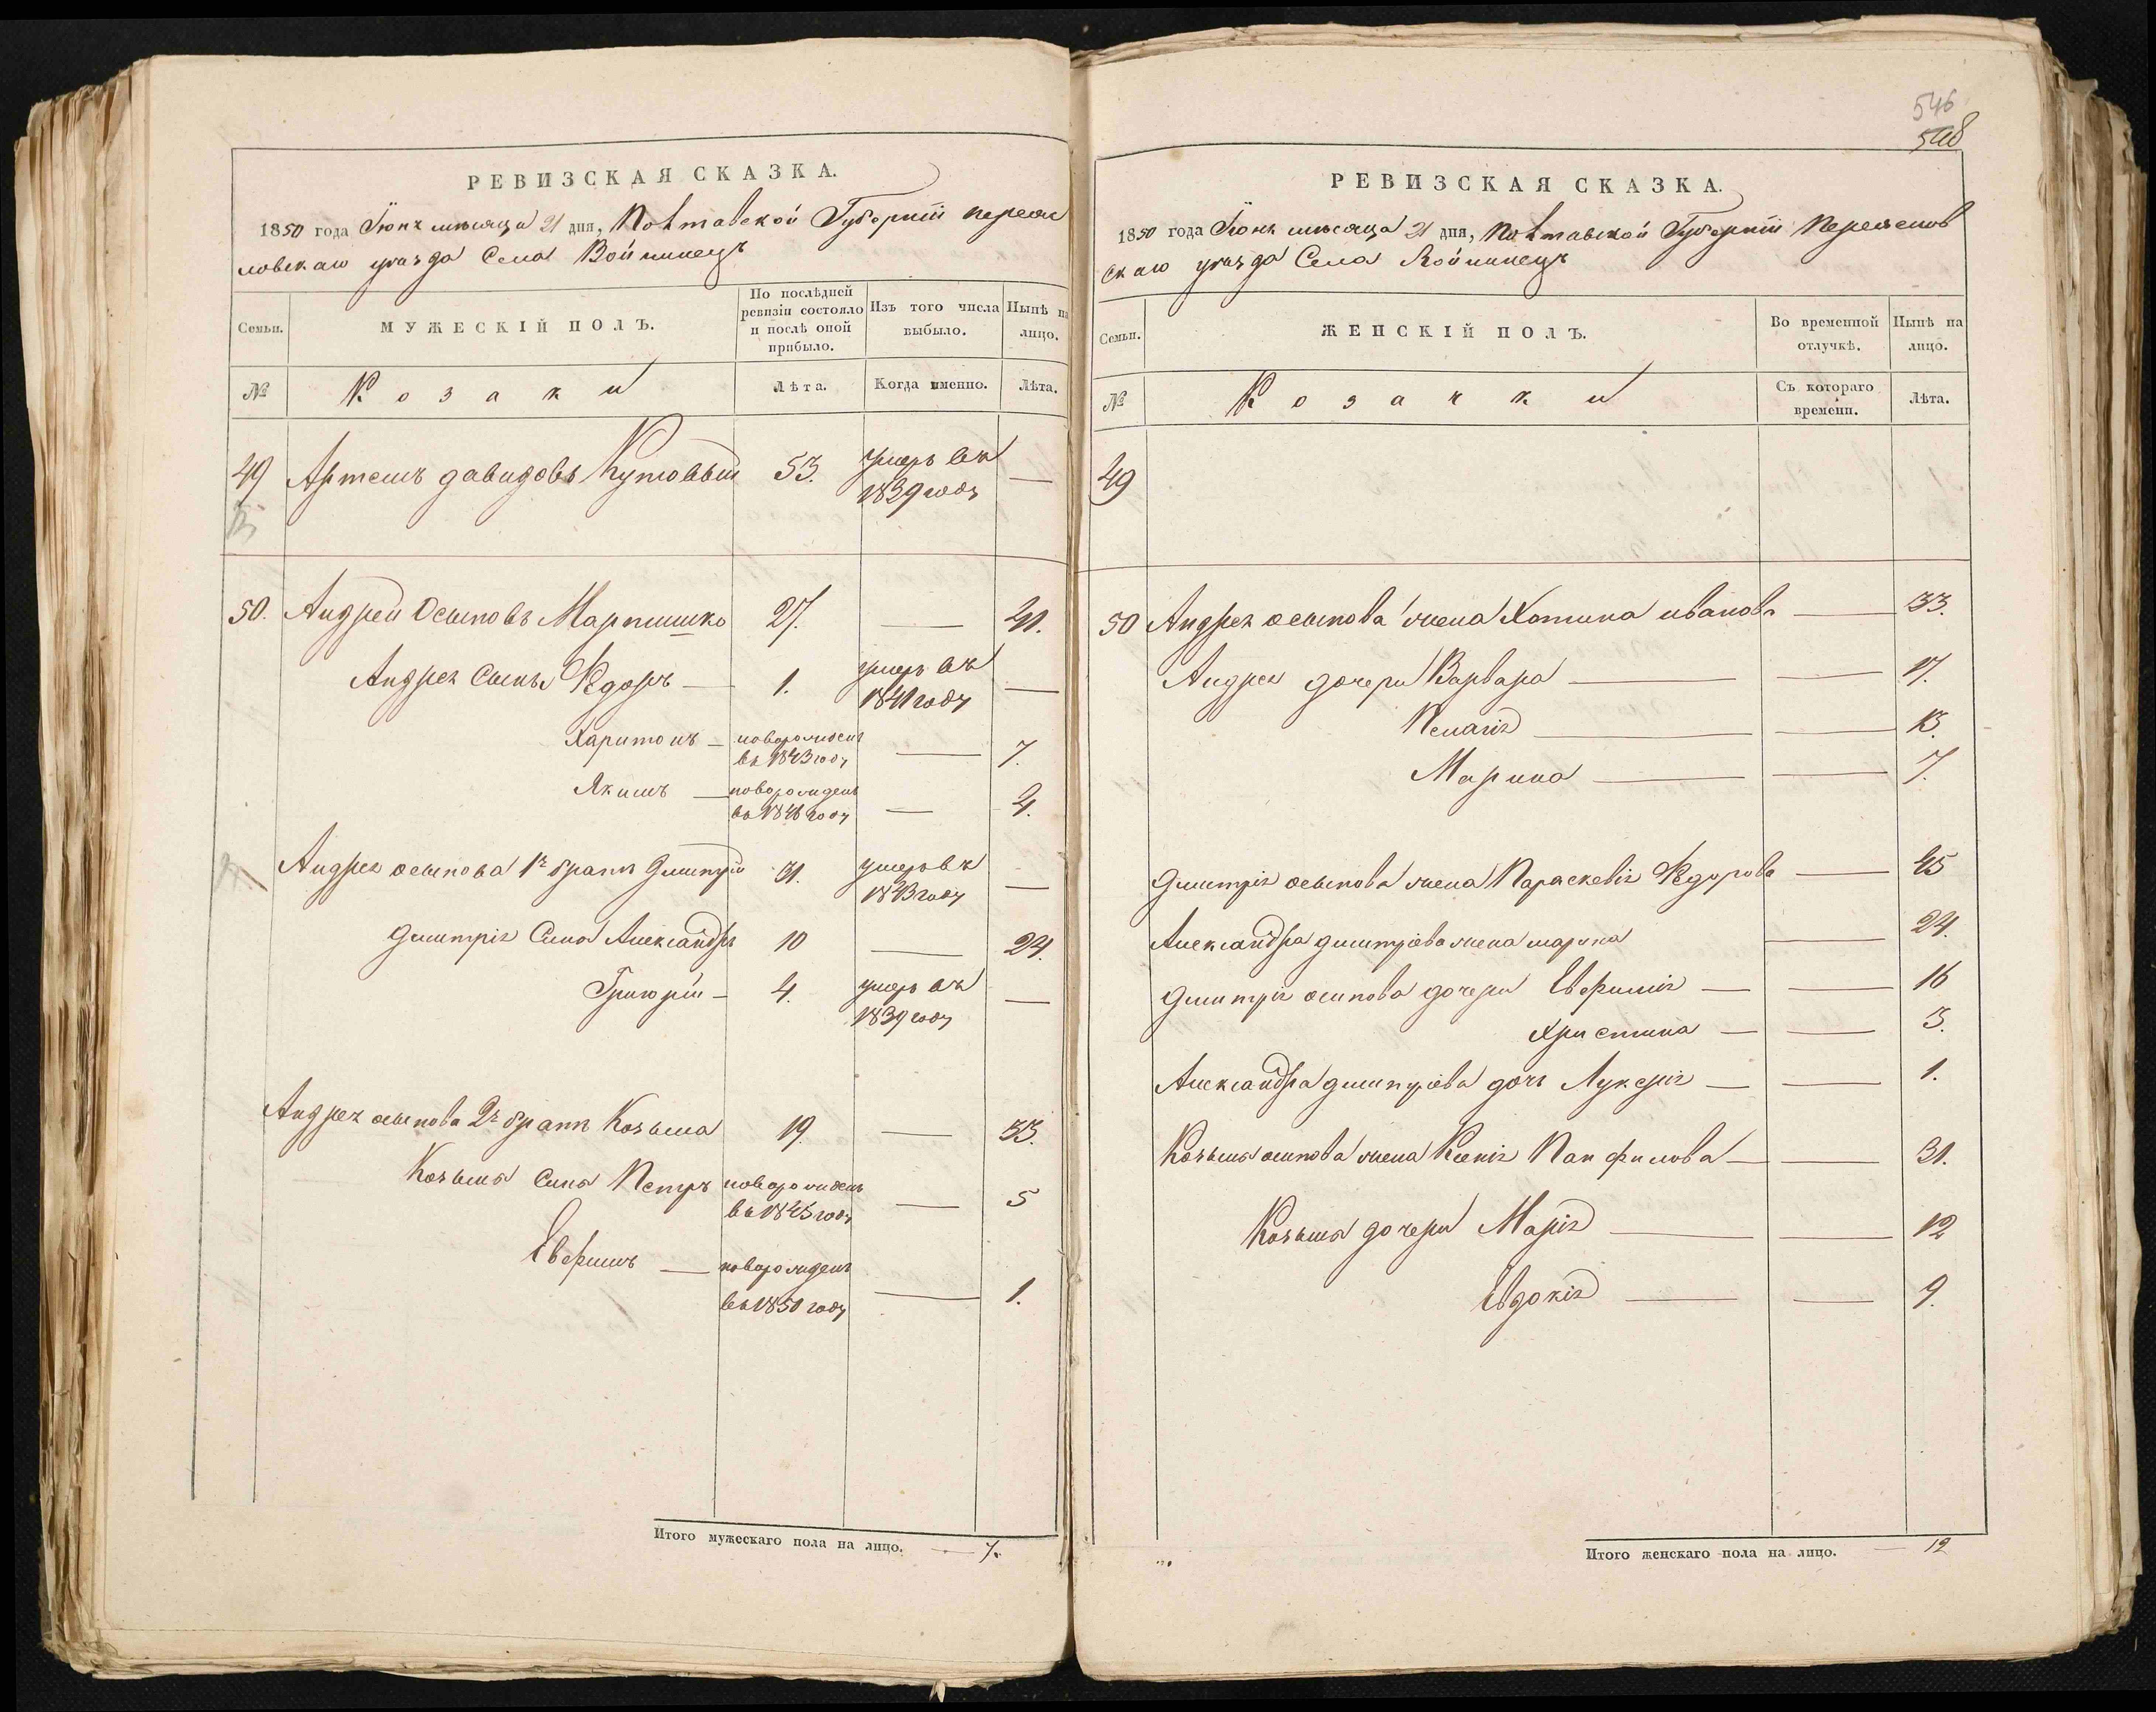 РЕВИЗСКАЯ СКАЗКА.
1850 года Іюня мѣсяца 21 дня, Полтавской Губерніи переяс
ловскаго уѣзда Села Войнинецъ
Семьи.
МУЖЕСКІЙ ПОЛЪ.
По послѣдней ревизіи состояло и послѣ оной прибыло.
Изъ того числа выбыло.
Нынѣ на лицо.
№
Козаки
Лѣта.
Когда именно.
Лѣта.
49 Артемъ давидовъ Кутовый 53. умеръ въ —
1839 году
50. Андрей Осыповъ Мартишко 27. — 41.
Андрея Сынъ Ѳедоръ — 1. умеръ въ —
1841 году
Харитонъ — новорожден — 7.
въ 1843 году
Якимъ — новорожденъ — 4.
въ 1846 году
Андрея осыпова 1й братъ Дмитрій 31. умеръ въ —
1843 году
Дмитрія Сына Александръ 10 — 24.
Григорій — 4. умеръ въ —
1839 году
Андрея осыпова 2й братъ Козьма 19. — 33.
Козьмы Сына Петръ новорожденъ — 5
въ 1845 году
Евфимъ — новорожденъ — 1.
въ 1850 году
Итого мужескаго пола на лицо. — 7.
546
548
РЕВИЗСКАЯ СКАЗКА.
1850 года Іюня мѣсяца 21 дня, Полтавской Губерніи Переяслов
скаго уѣзда Села Войнинецъ
Семьи.
ЖЕНСКІЙ ПОЛЪ.
Во временной отлучкѣ.
Нынѣ на лицо.
№
Козачки
Съ котораго времени.
Лѣта.
49
50 Андрея осыпова жена Хотина иванова — 33.
Андрея дочери Варвара — — 17.
Пелагія — — 13.
Марина — — 7.
Дмитрія осыпова жена Параскевія Ѳедорова — 45
Александра дмитріева жена марина — 24.
Дмитрія осипова дочери Евфимія — — 16
Христина — — 3.
Александра дмитріева дочь Лукерія — — 1.
Козьмы осипова жена Ксенія Панфилова — — 31.
Козьмы дочери Марія — — 12
Евдокія — — 9.
Итого женскаго пола на лицо. — 12